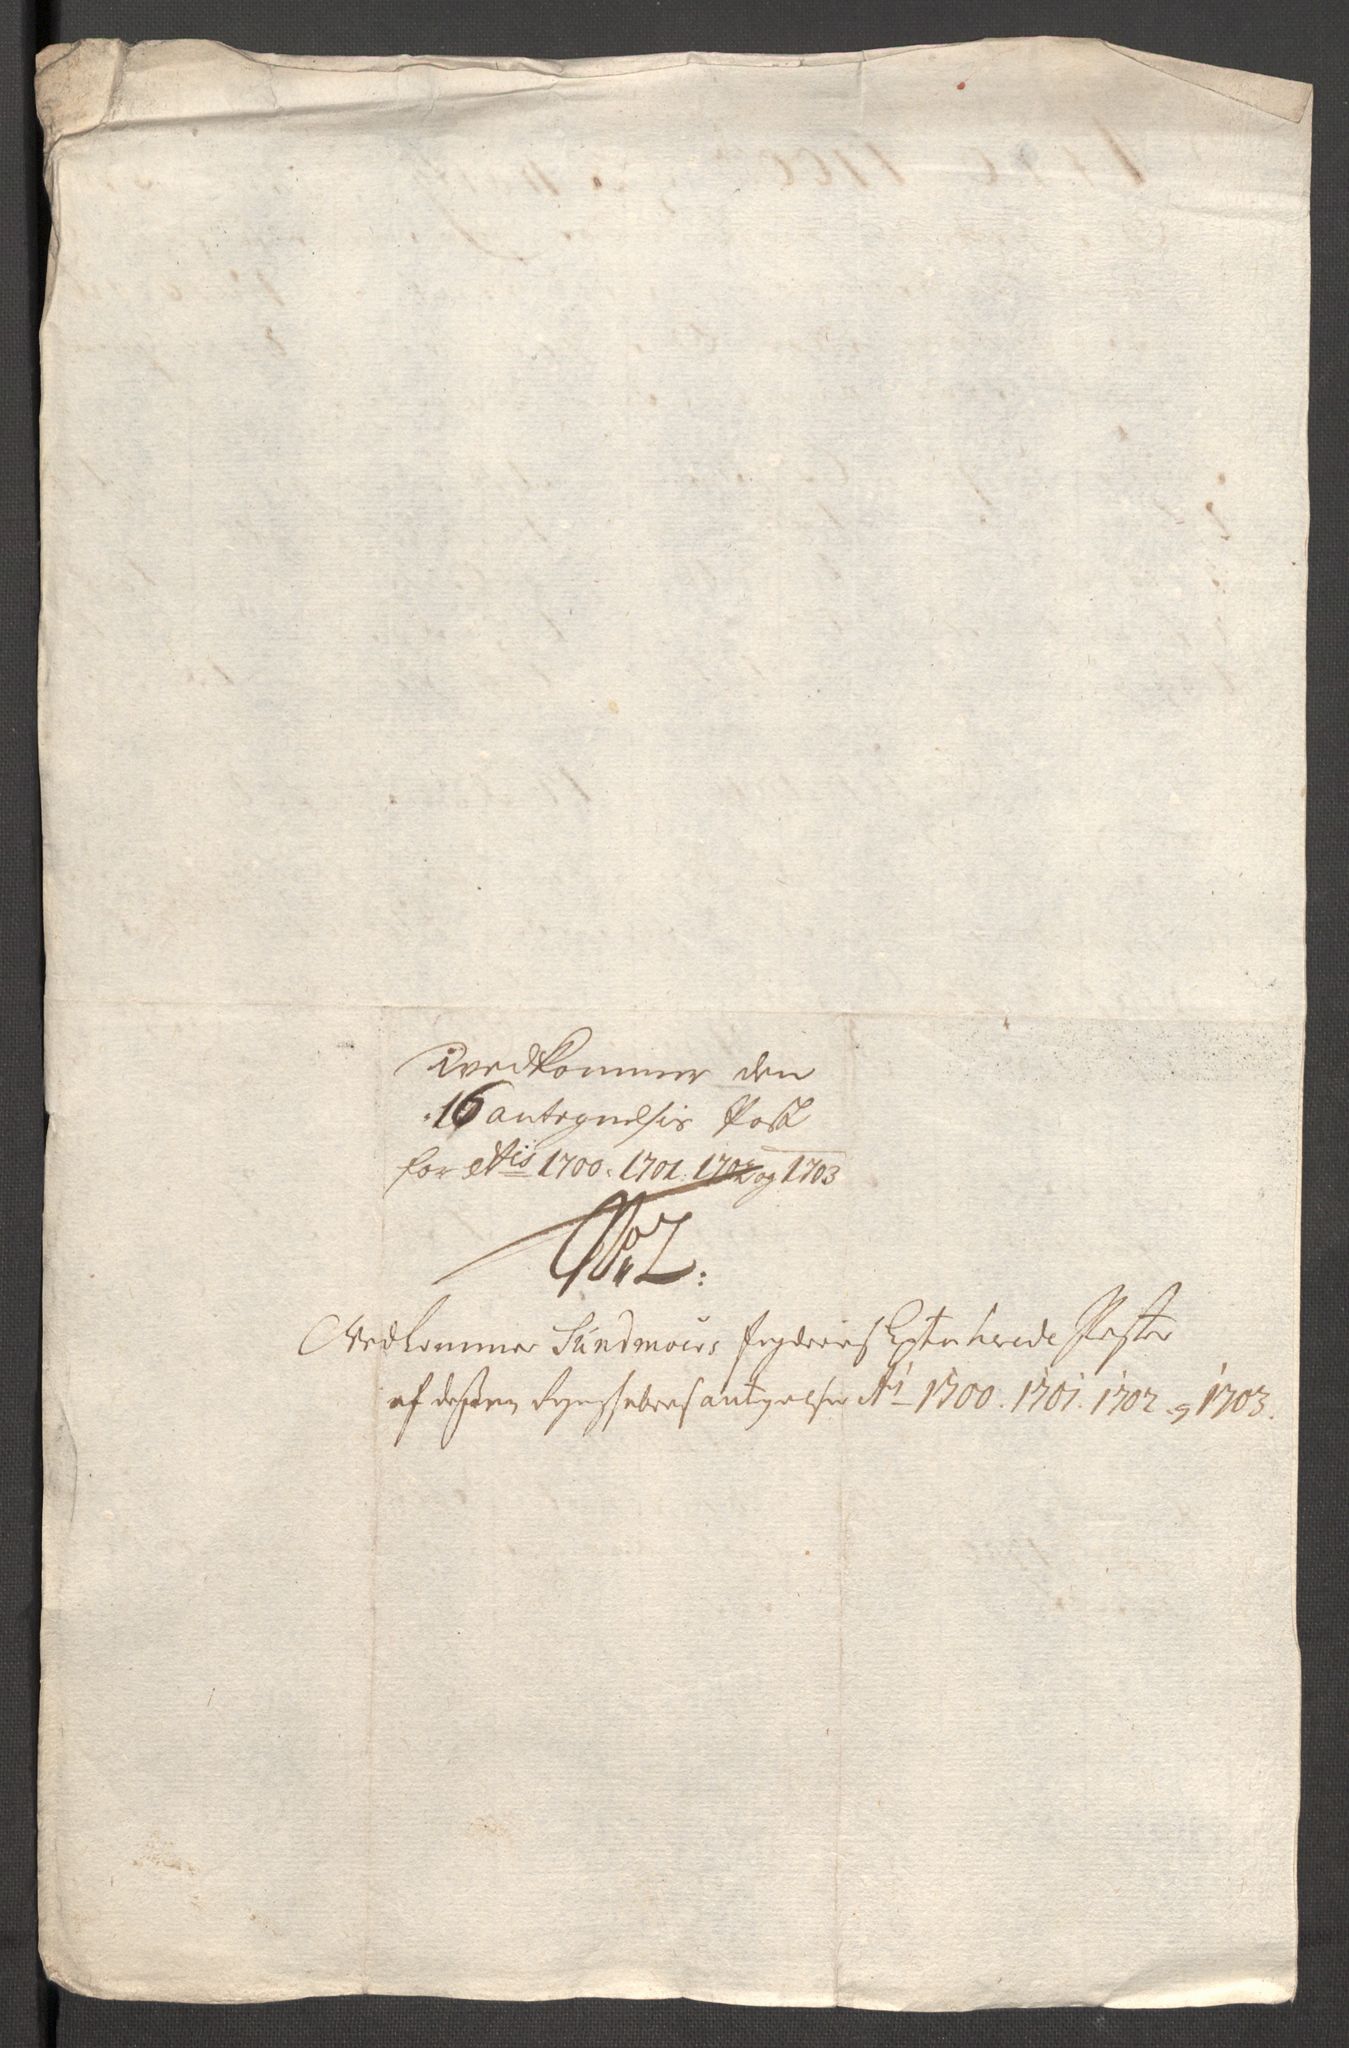 Vedkommer den
16 antegnelsis Post
for Aõis 1700. 1701. 1702 og 1703
Vedkommer Sundmoers Fogderies Extraherede Poster
af dessen Regenskabers antegnelser Aõ 1700. 1701. 1702. og 1703.